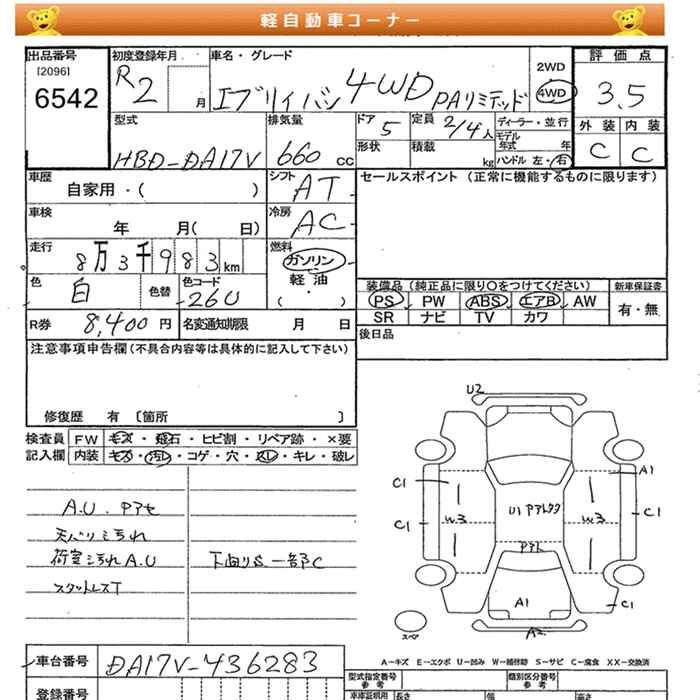 軽自動車コーナー
出品番号 初度登録年月 車名・グレード 評価点
[2096]
6542
R2 月 エブリイバン 4WD PAリミテッド
2WD
4WD
3.5
型式 排気量 ドア 定員 ディーラー・並行 外装 内装
HBD-DA17V 660 cc 5 2/4人 モデル年式 年 C C
形状 積載 kg ハンドル 左・右
車歴 シフト セールスポイント (正常に機能するものに限ります)
自家用・( ) AT
車検 冷房
年 月( 日) AC
走行 燃料
8万3千983km ガソリン
軽油
( )
色 色替 色コード 装備品 (純正品に限り○をつけてください) 新車保証書
白 26U PS PW ABS エアB AW 有・無
SR ナビ TV カワ
R券 8,400円 名変通知期限 月 日 後日品
注意事項申告欄(不具合内容等は具体的に記入して下さい)
修復歴 有 〔箇所 〕
検査員 FW キズ・飛石・ヒビ割・リペア跡・×要
記入欄 内装 キズ・汚レ・コゲ・穴・スレ・キレ・破レ
A.U.Pアセ
天バリ汚れ
荷室汚れA.U 下回りS 一部C
スタットレスT
U2
C1 A1
W3 U1 W3
C1 C1
A1
C1
スペア A2
A-キズ E-エクボ U-凹み W-補修跡 S-サビ C-腐食 XX-交換済
車台番号 DA17V-436283
型式指定番号 類別区分番号
参考 参考
登録番号 車庫証明用 長さ 幅 高さ